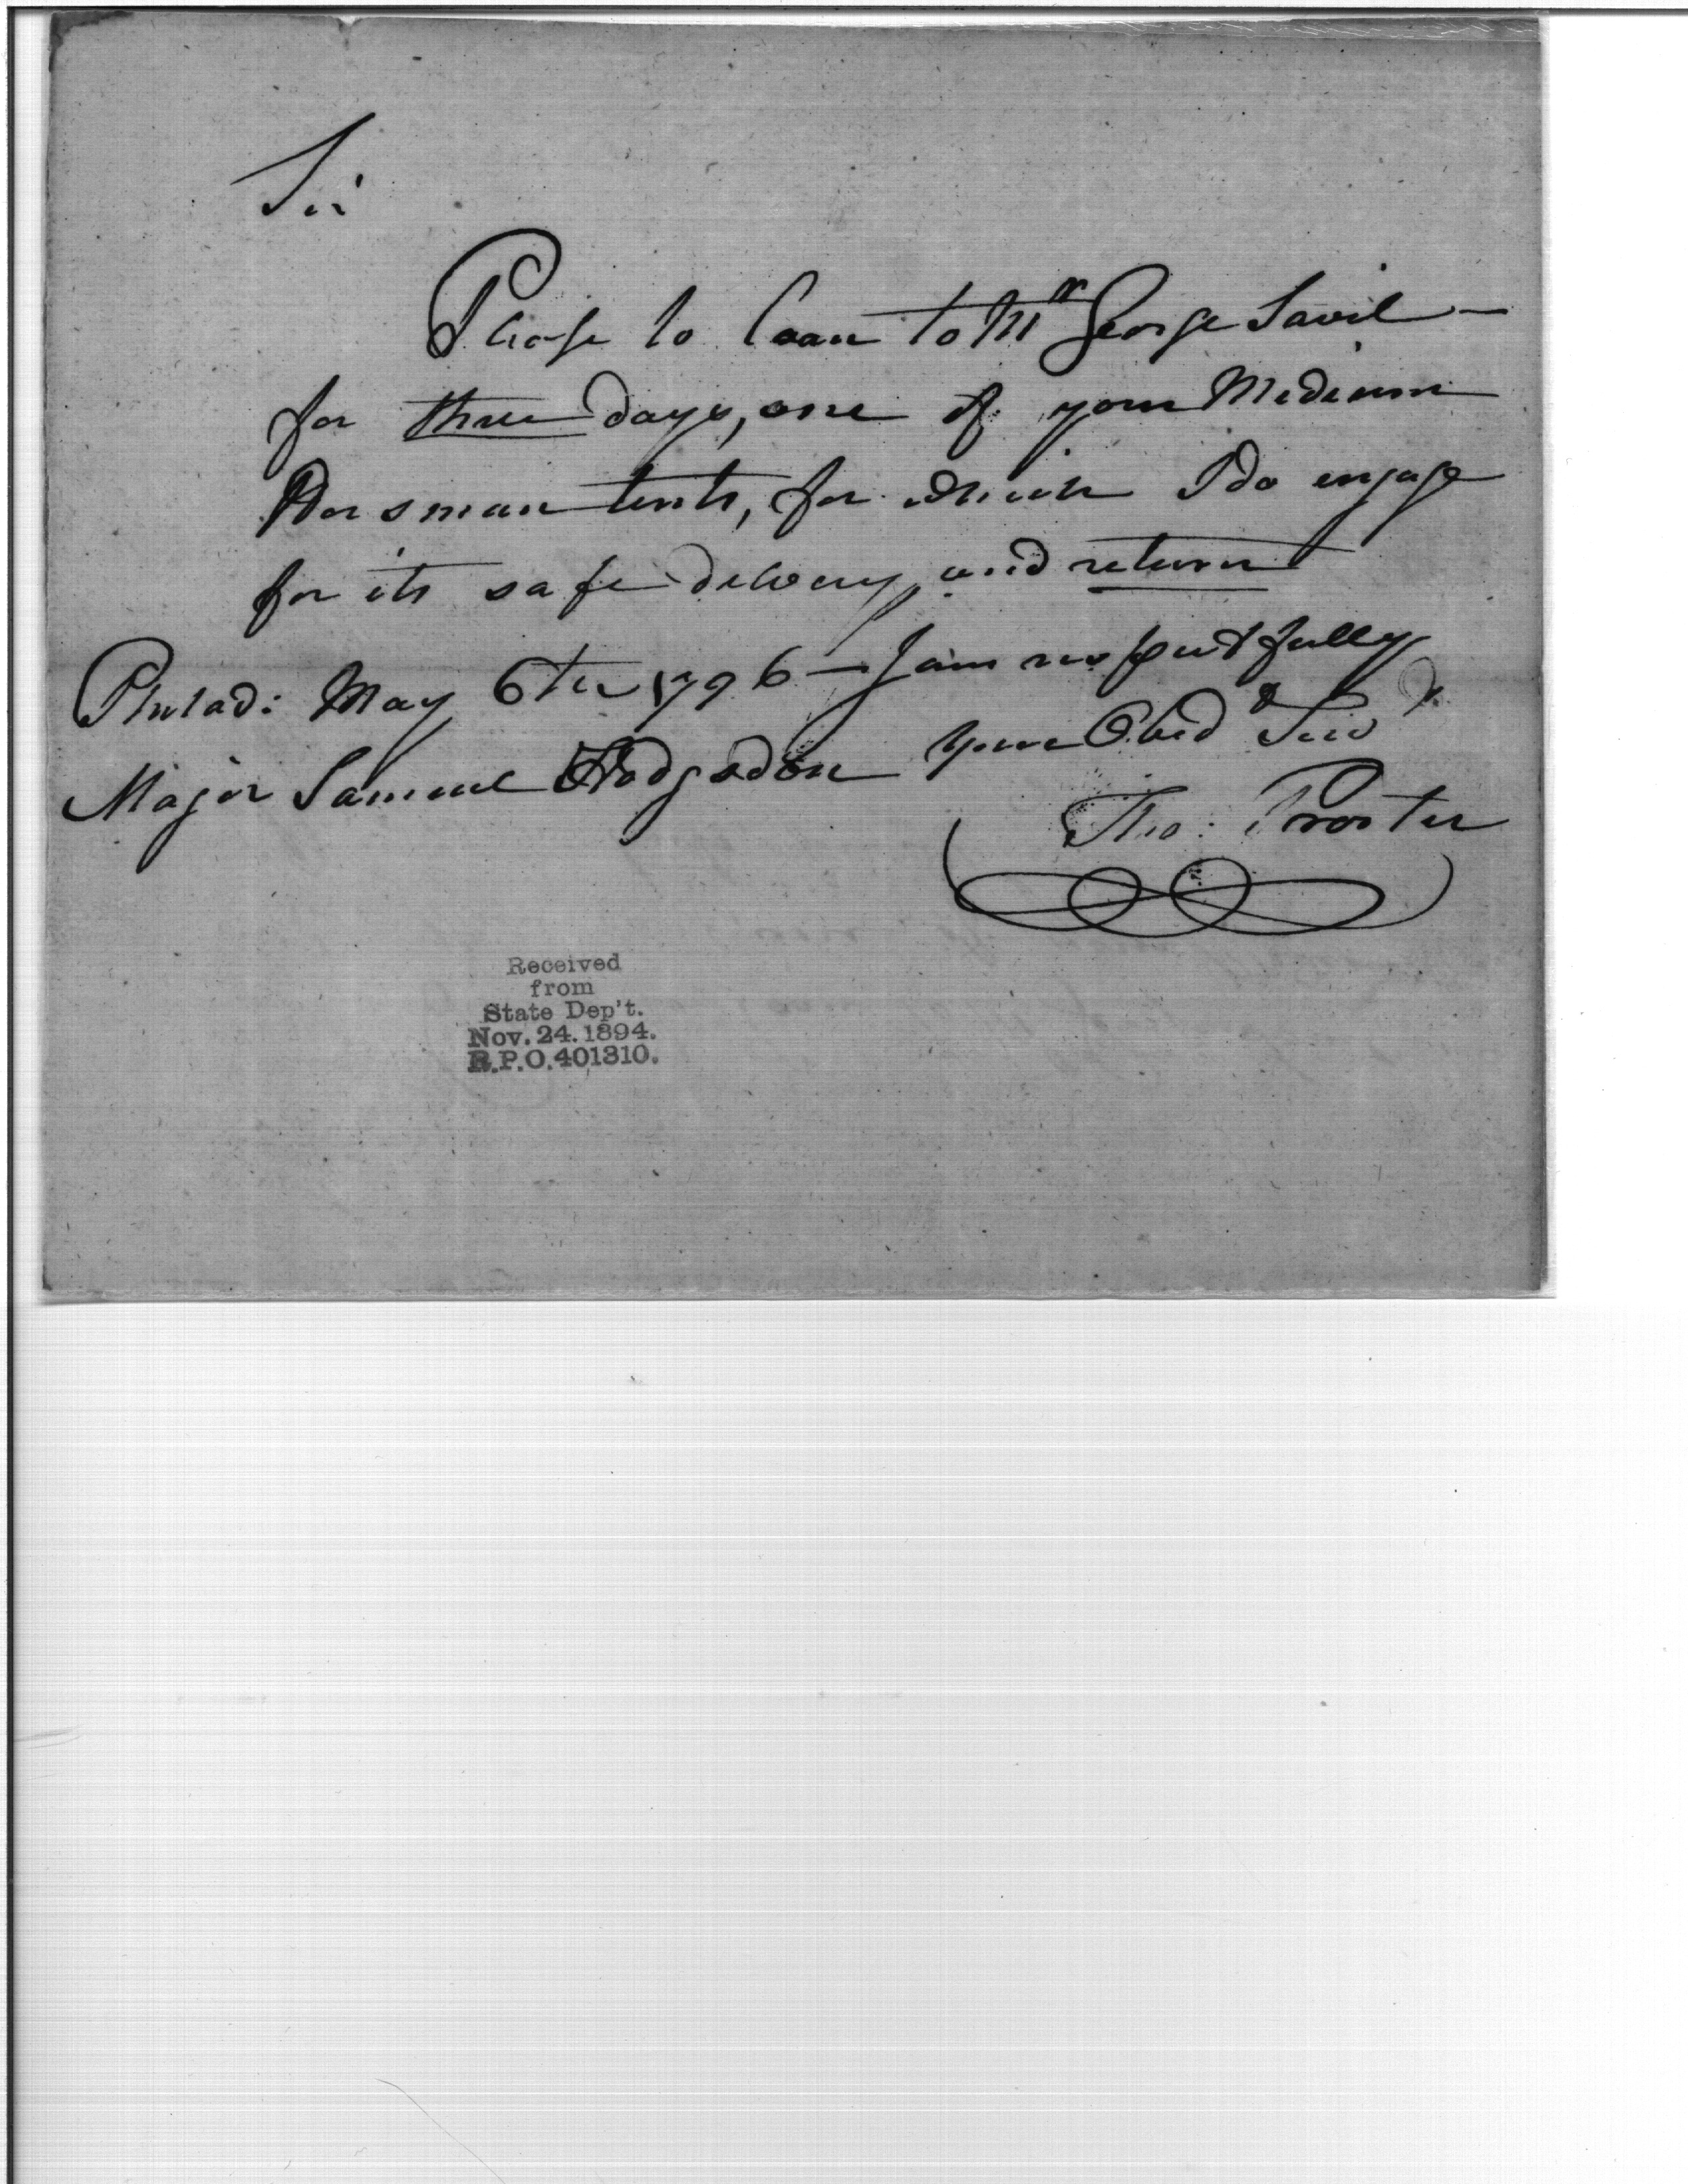 Sir
Please to loan to Mr George Savil —
for three days, one of your Medium
Horsman tents, for which I do engage
for its safe delivery and return
Philad: May 6th 1796 — I am respectfully
your Obed Serv
Major Samuel Hodgsdon
Tho: Procter
Received
from
State Dep't.
Nov. 24. 1894.
R.P.O. 401310.